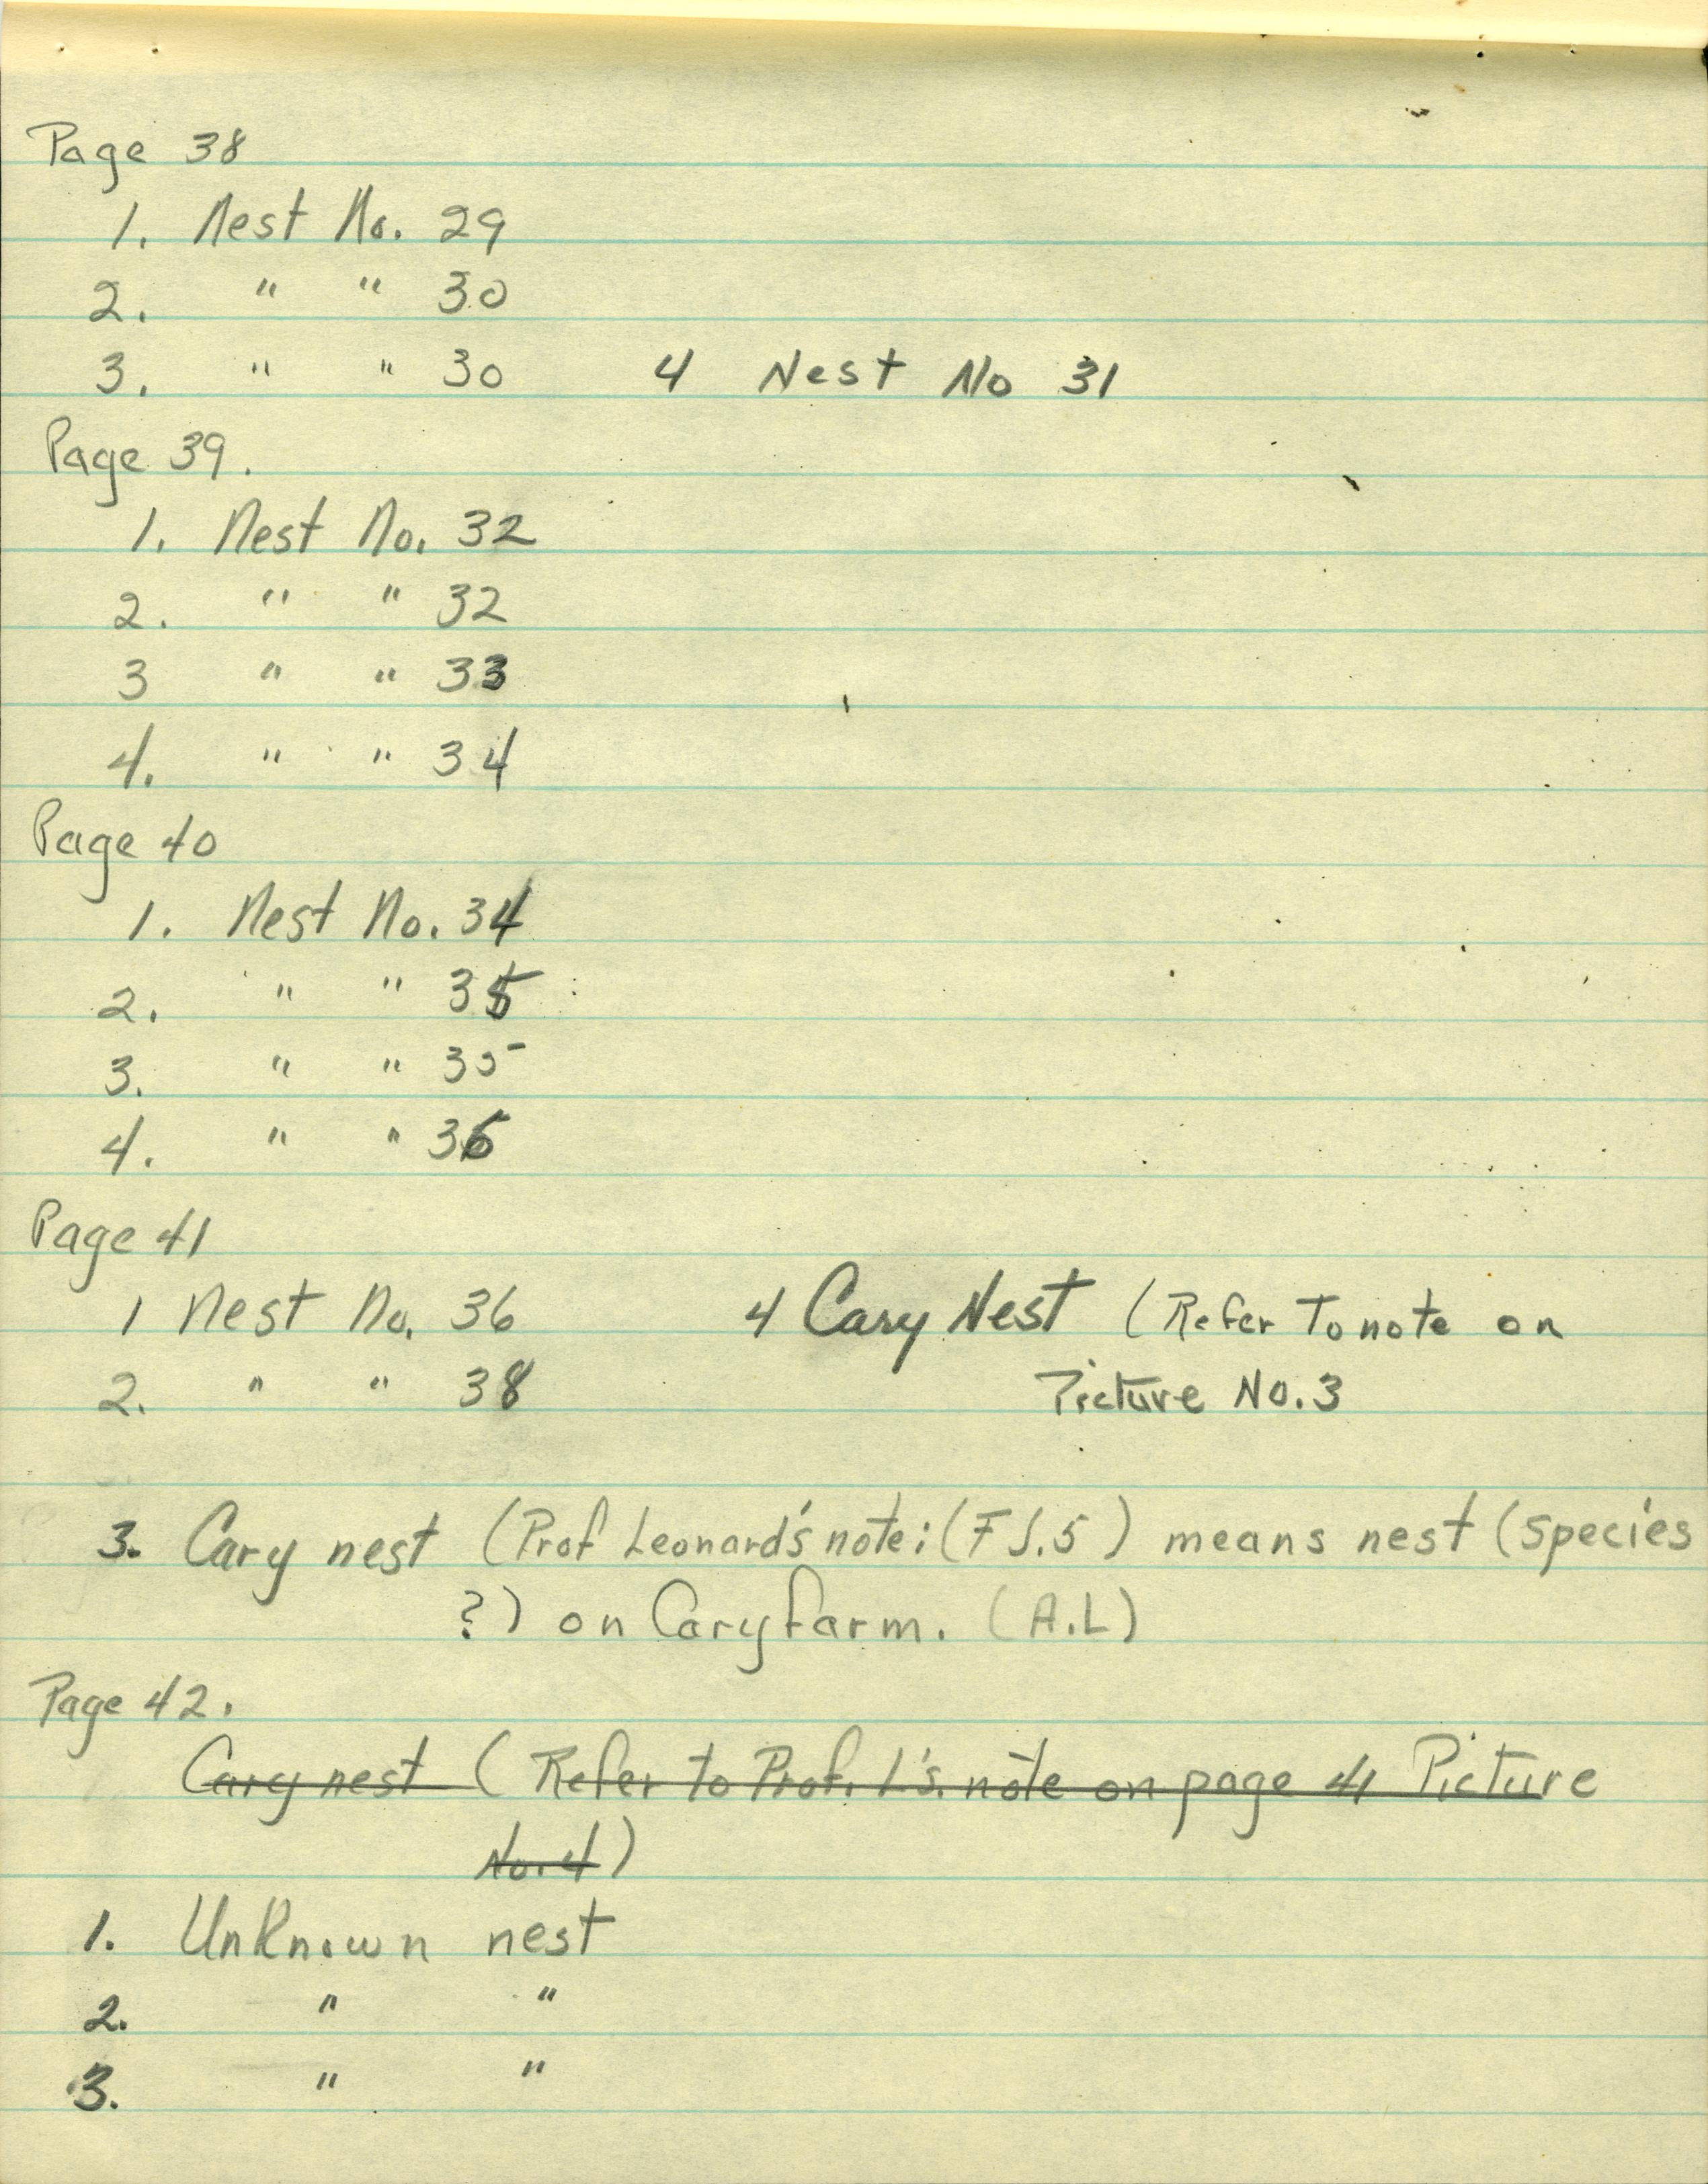 Page 38
1. Nest No. 29
2. " " 30
3. " " 30 4 Nest No 31
Page 39.
1. Nest No. 32
2. " " 32
3 " " 33
4. " " 34
Page 40
1. Nest No. 34
2. " " 35
3. " " 35
4. " " 36
Page 41
1 Nest No. 36 4 Cary Nest (Refer To note on
2. " " 38 Picture No. 3
3. Cary nest (Prof Leonard's note: (F J.5) means nest (species
?) on Cary farm. (A.L)
Page 42.
Cary nest (Refer to Prof. L's. note on page 41 Picture
No. 4)
1. Unknown nest
2. " "
3. " "